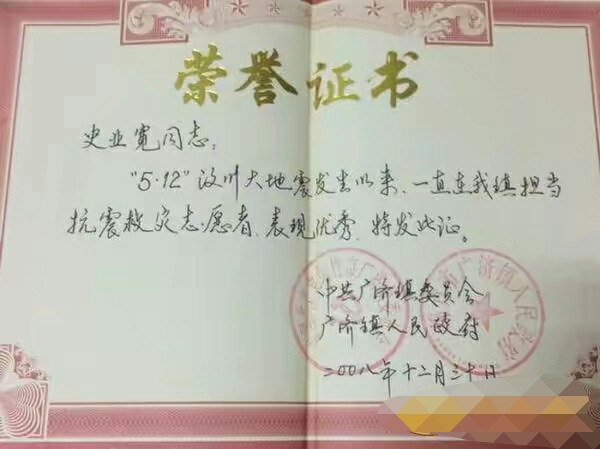 荣誉证书
史业宽同志:
"5·12"汶川大地震发生以来、一直在我镇担当
抗震救灾志愿者、表现优秀、特发此证。
中共广济镇委员会
广济镇人民政府
二00八年十二月三十日